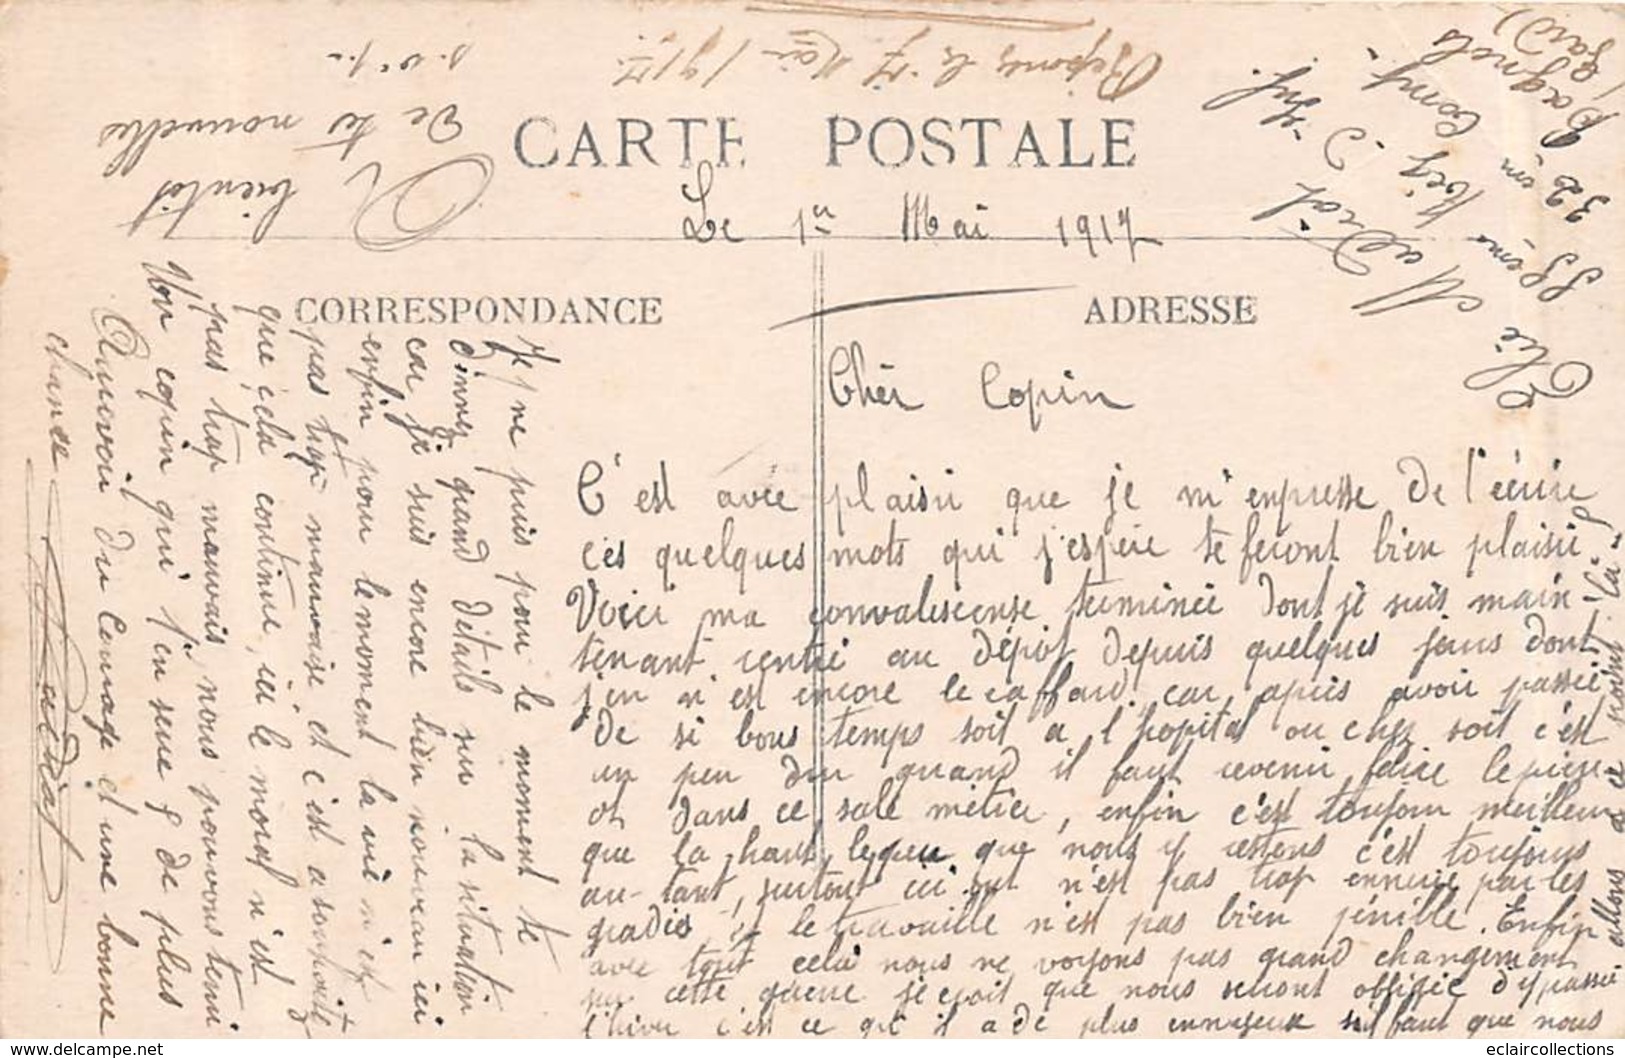 CARTE POSTALE
Le 1er Mai 1917
CORRESPONDANCE
ADRESSE
Cher Copin
C'est avec plaisir que je m'enpresse de t'écrire
ces quelques mots qui j'espère te feront bien plaisir
Voici ma convalescense terminée dont je suis main-
tenant rentré au dépot depuis quelques jours dont
j'en n'est encore le caffard, car après avoir passée
de si bons temps soit a l'hopital ou chez soit c'est
un peu dur quand il faut revenir faire le pierr
ot dans ce sale métier, enfin c'est toujour meilleur
que la haut, le peu que nous y restons c'est toujours
au-tant, surtout ici ont n'est pas trop ennuié par les
gradés et le travaille n'est pas bien pénille. Enfin
avec tout cela nous ne voyons pas grand changement
sur cette guerre je croit que nous seront obligié d'y passé
l'hiver c'est ce qu'il a de plus ennuyeux s'il faut que nous
allons a ce moment là.
Je ne puis pour le moment te
donnez grand détails sur la situation
car je suis encore bien nouveau ici
enfin pour le moment la vie n'est
pas trop mauvaise et c'est a souhaité
que cela continue, ici le moral n'est
pas trop mauvais, nous pouvons tenir
Ton copin qui t'en serre 5 de plus
Auervoir du Courage et une bonne
chance
A bientot
De tes nouvelles
s.v.p.
Réponse le 17 Mai 1917
Elie Maldiat
55ème Rég. d'Inf.
32em Comp.
Bagnols
(Gard)
eclaircollections
www.delcampe.net